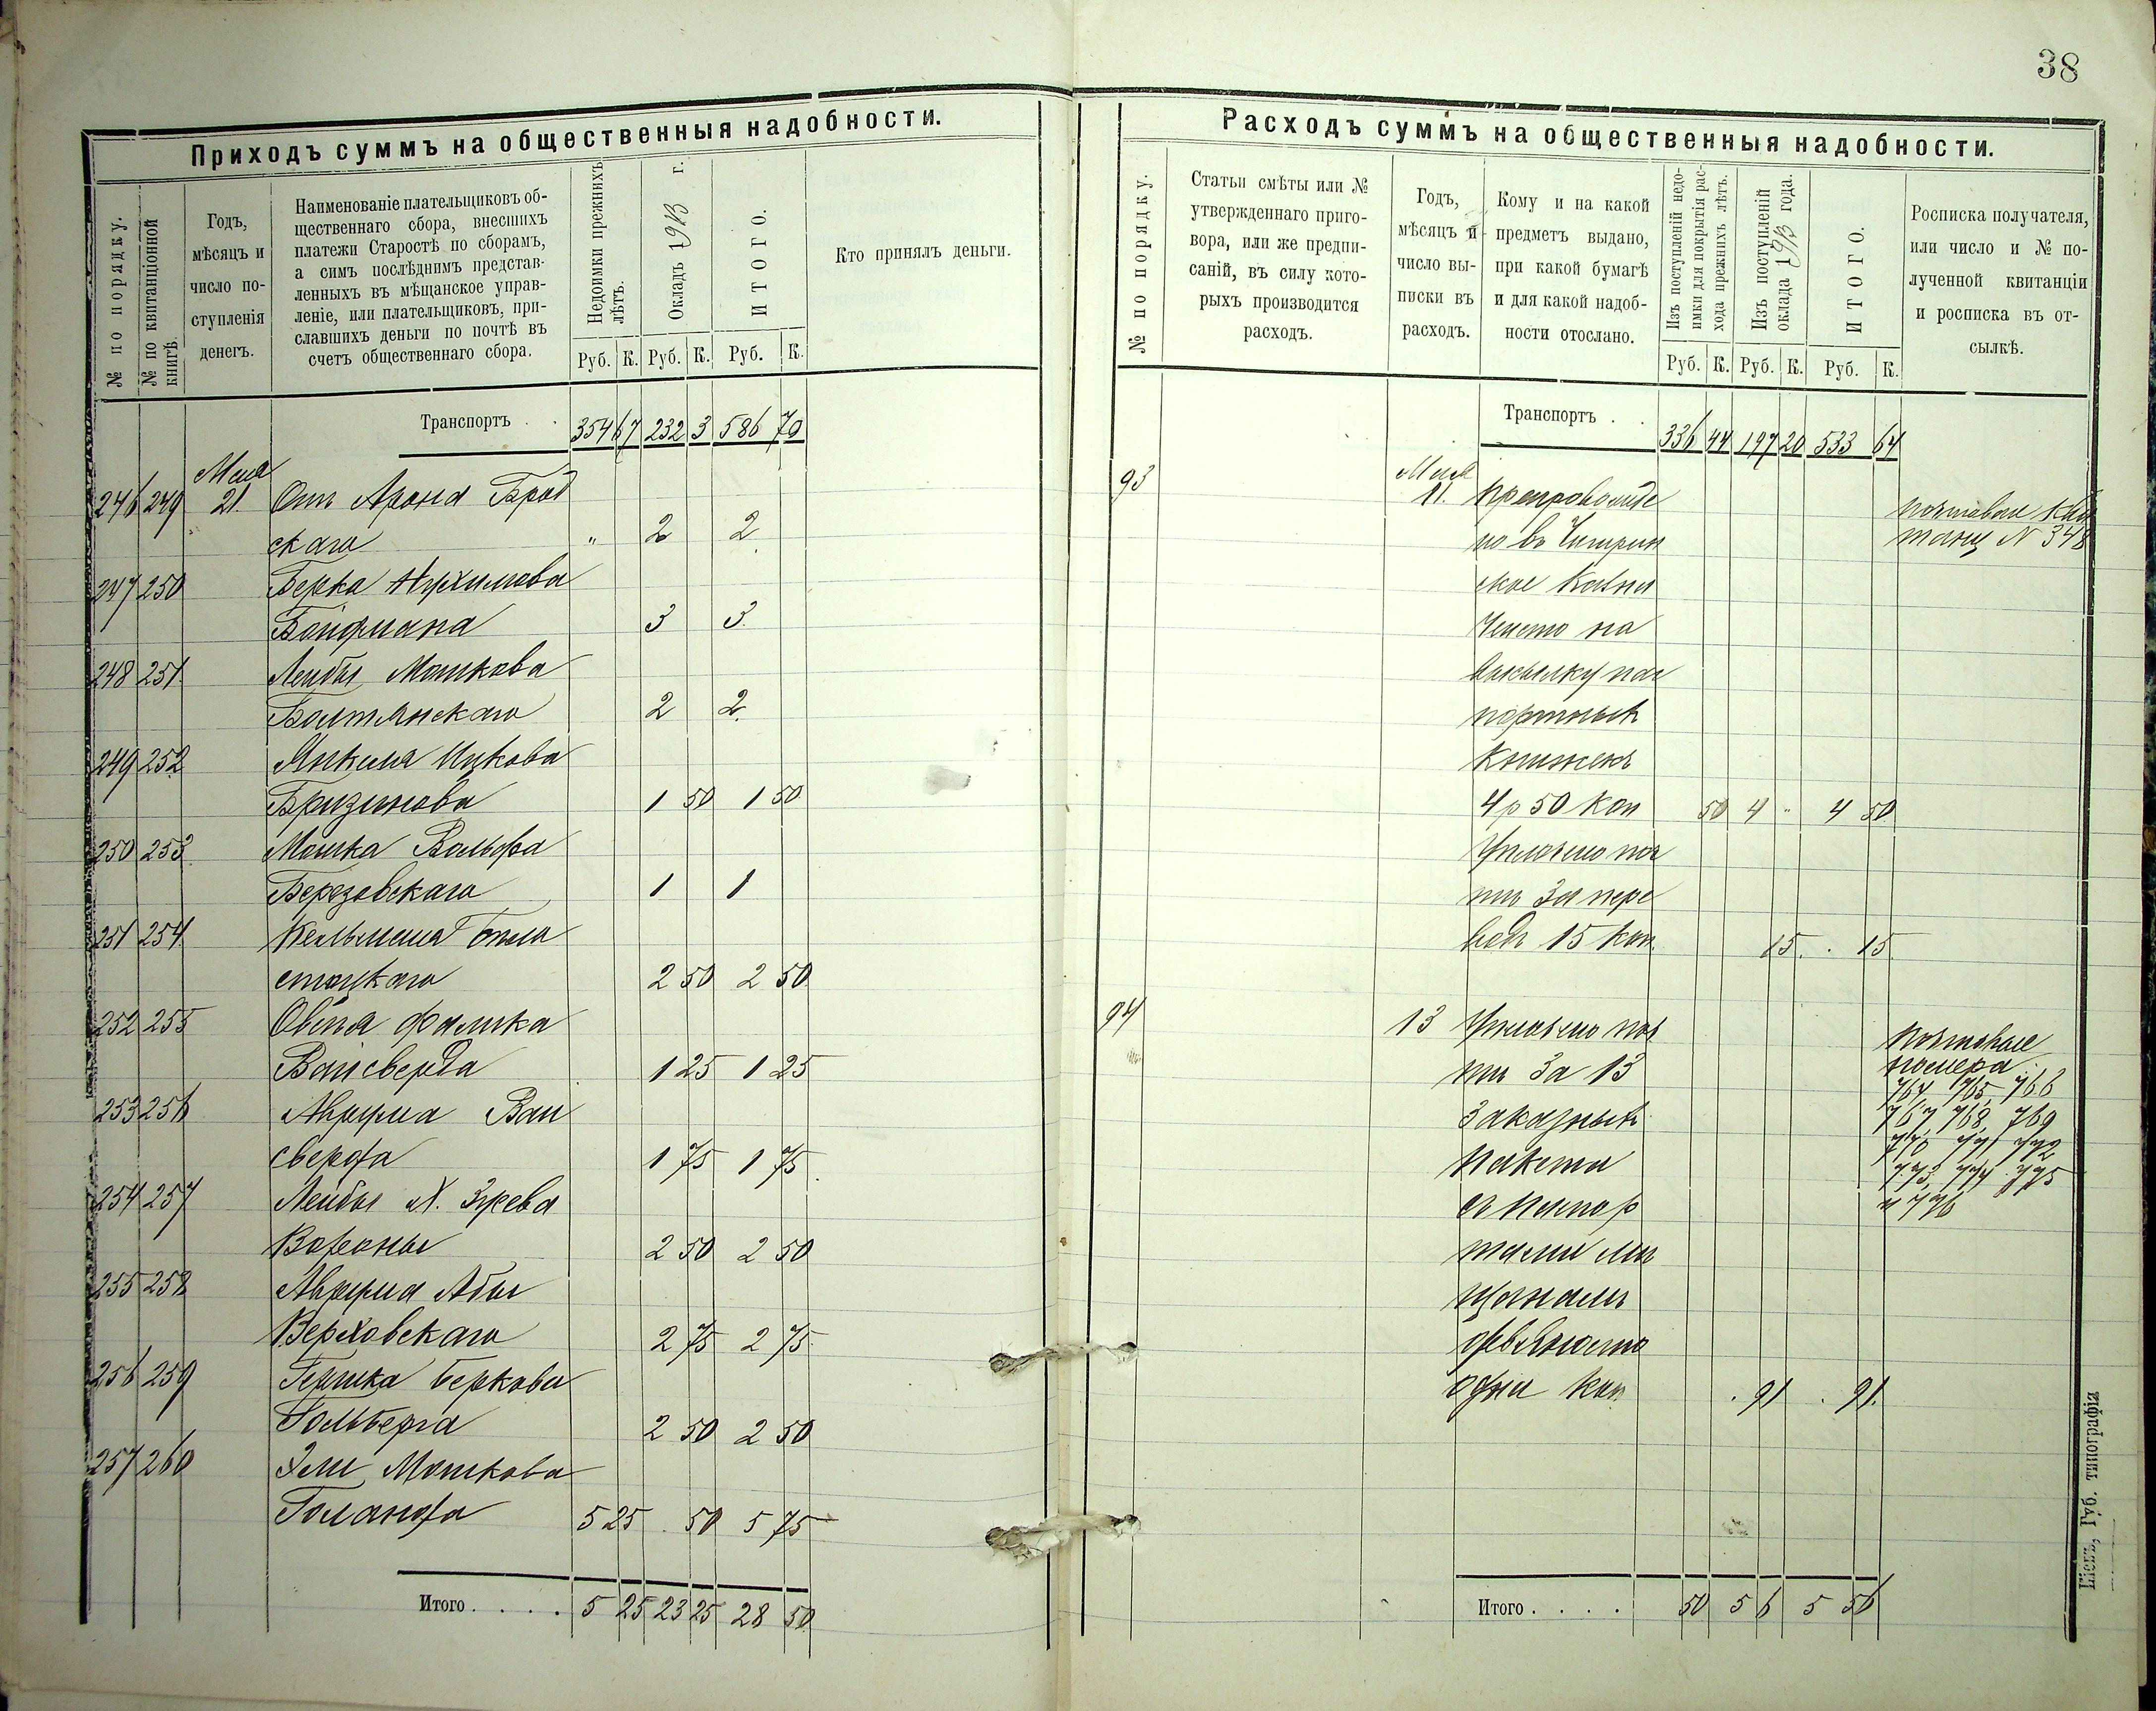 38
Приходъ суммъ на общественныя надобности.
№ по порядку.
№ по квитанціонной книгѣ.
Годъ,
мѣсяцъ и
число по-
ступленія
денегъ.
Наименованіе плательщиковъ об-
щественнаго сбора, внесшихъ
платежи Старостѣ по сборамъ,
а симъ послѣднимъ представ-
ленныхъ въ мѣщанское управ-
леніе, или плательщиковъ, при-
славшихъ деньги по почтѣ въ
счетъ общественнаго сбора.
Недоимки прежнихъ
лѣтъ.
Окладъ 1913 г.
ИТОГО.
Кто принялъ деньги.
Руб. К. Руб. К. Руб. К.
Транспортъ . . 354 67 232 3 586 70
Мая
246 249 21. Отъ Арона Брод
скаго " 2 2
247 250 Берка
Бойфмана 3 3.
248 251 Лейбы Мошкова
Балтянскаго 2 2.
249 252 Янкеля Ицкова
1 50 1 50
250 253 Мошка Вольфа
Березовскаго 1 1
251 254 Кельмана Бѣло
стоцкаго 2 50 2 50
252 255 Овсѣя Фалика
Вайсверда 1 25 1 25
253 256 Аврума Вай
сверда 1 75 1 75.
254 257 Лейбы Х. Зусева
Вороны 2 50 2 50
255 258 Аврума Абы
Верховскаго 2 75 2 75.
256 259 Гершка Беркова
Гольберга 2 50 2 50
257 260 Эли Мошкова
Голанда 5 25 . 50 5 75
Итого . . . . 5 25 23 25 28 50
Расходъ суммъ на общественныя надобности.
№ по порядку.
Статьи смѣты или №
утвержденнаго приго-
вора, или же предпи-
саній, въ силу кото-
рыхъ производится
расходъ.
Годъ,
мѣсяцъ и
число вы-
писки въ
расходъ.
Кому и на какой
предметъ выдано,
при какой бумагѣ
и для какой надоб-
ности отослано.
Изъ поступленій недо-
имки для покрытія рас-
хода прежнихъ лѣтъ.
Изъ поступленій
оклада 1913 года.
ИТОГО.
Росписка получателя,
или число и № по-
лученной квитанціи
и росписка въ от-
сылкѣ.
Руб. К. Руб. К. Руб. К.
Транспортъ . . 336 44 197 20 533 64
93 Мая
11. Препровожде
но въ Чигирин
ское Казна
чейство на
высылку пас
портныхъ
книжекъ
4 р 50 коп 50 4 " 4 50
Уплочено поч
тѣ за пере
водъ 15 коп. 15. . 15.
Почтовая кви
танц N 348
94 13 Уплочено поч
тѣ за 13
заказныхъ
пакета
съ паспор
тами мѣ
щанамъ
девяносто
одна коп . 91 . 91.
Почтовые
номера
764, 765, 766
767, 768, 769
770 771 772
773, 774 775
и 776
Итого . . . . 50 5 6 5 56
Кіевъ, Губ. типографія